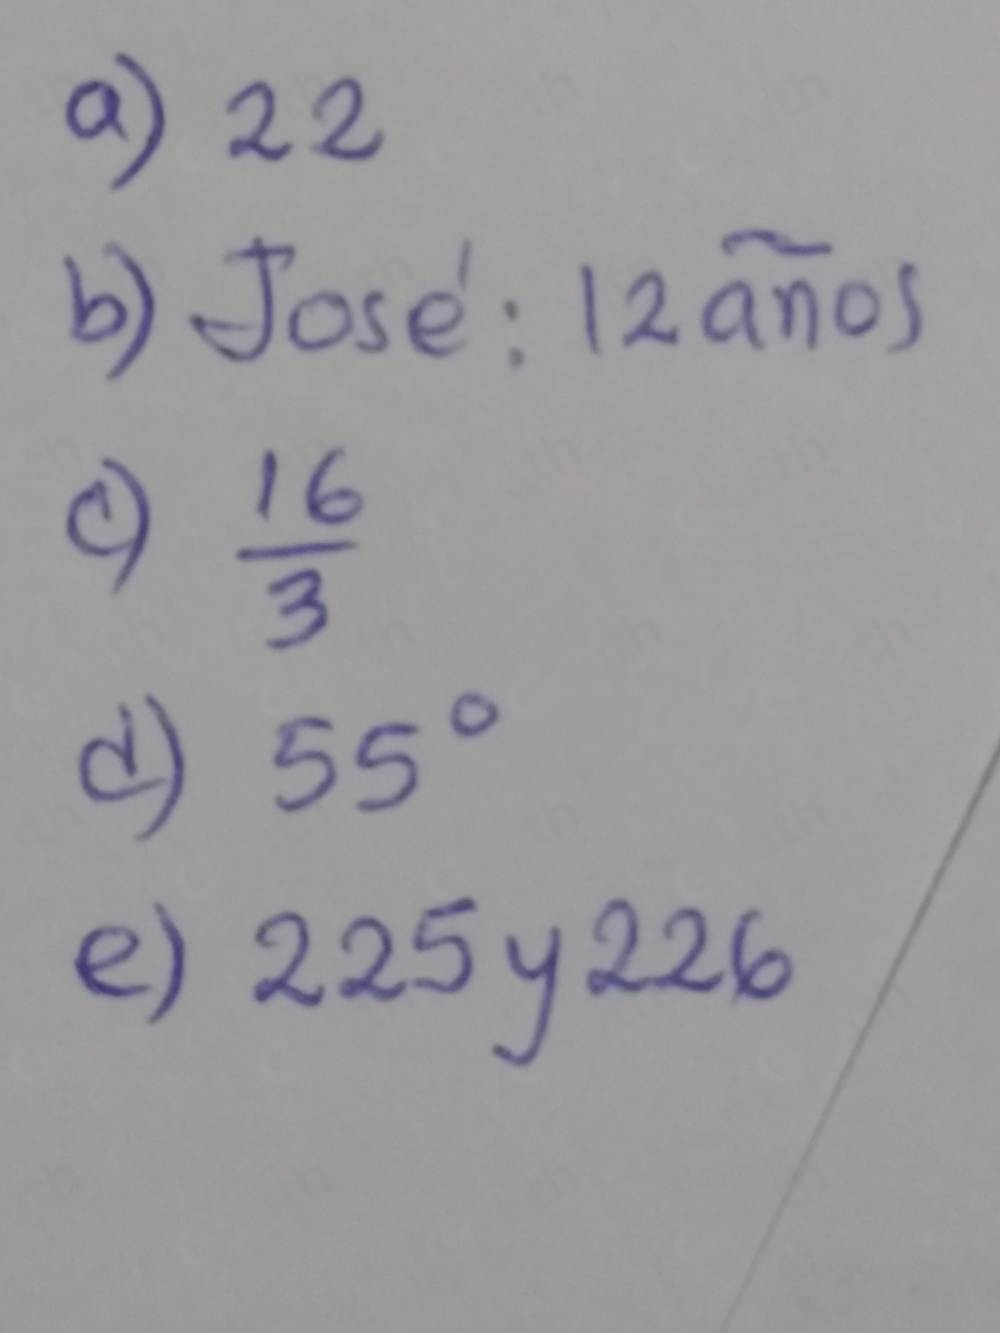 a) 22
b) José: 12 años
c) 16/3
d) 55°
e) 225 y 226